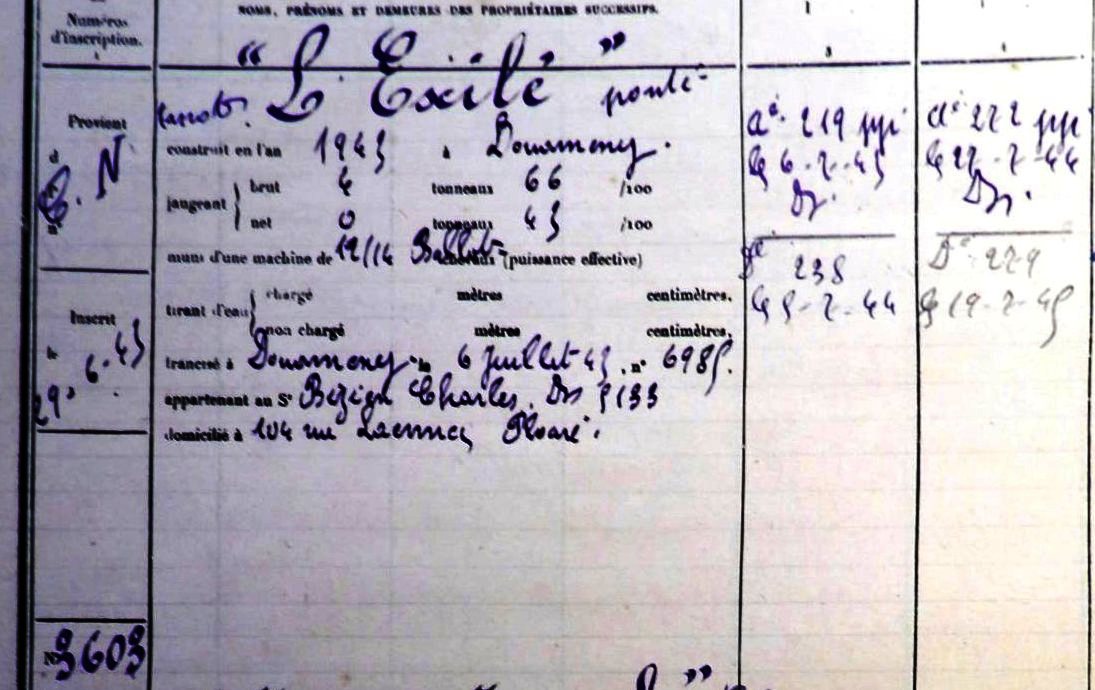 Numéros
d'inscription.
NOMS, PRÉNOMS ET DEMEURES DES PROPRIÉTAIRES SUCCESSIFS.
" L'Exilé "
canot ponté
Provient
d
C. N
n°
construit en l'an 1943 à Douarnenez.
jaugeant brut 4 tonneaux 66 /100
net 0 tonneaux 43 /100
muni d'une machine de 12/14 Ballot chevaux (puissance effective)
tirant d'eau chargé mètres centimètres.
non chargé mètres centimètres.
Inscrit
le
29. 6. 43
francisé à Douarnenez le 6 Juillet 43. n° 6985.
appartenant au Sr Bézien Charles. Dz 5133
domicilié à 104 rue Laennec Ploaré.
N° 3603
3
aé 219
le 6-7-43
Dz.
Dé 238
le 5-7-44
4
aé 222
le 22-7-44
Dz.
Dé 229
le 19-7-45